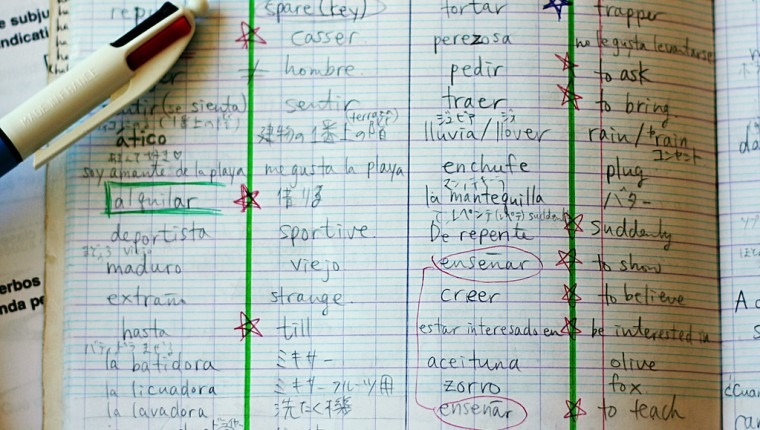 e subju
indicati
spare (key) tortar trapper
casser perezosa no le gusta levantarse
hombre pedir to ask
sentir (se sienta) sentir traer to bring
(terraza)
ático 建物の1番上の階 lluvia/llover rain/to rain
コンセント
soy amante de la playa me gusta la playa enchufe plug
alquilar 借りる la mantequilla バター
suddenly
deportista sportive De repente suddenly
maduro viejo enseñar to show
extraño strange creer to believe
hasta till estar interesado en be interested in
la batidora ミキサー aceituna olive
la licuadora ミキサーフルーツ用 zorro fox
la lavadora 洗たく機 enseñar to teach
erbos
nda pe